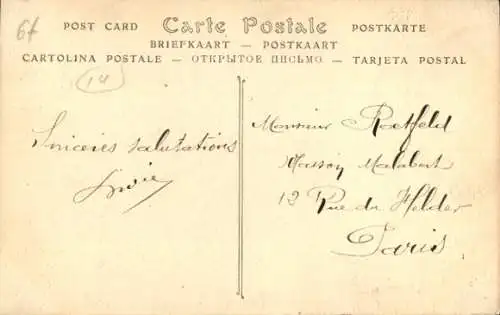 6f
POST CARD Carte Postale POSTKARTE
BRIEFKAART — POSTKAART
CARTOLINA POSTALE — ОТКРЫТОЕ ПИСЬМО — TARJETA POSTAL
14
Sincères salutations
Monsieur Rotfeld
Maison Malabert
12 Rue du Helder
Paris